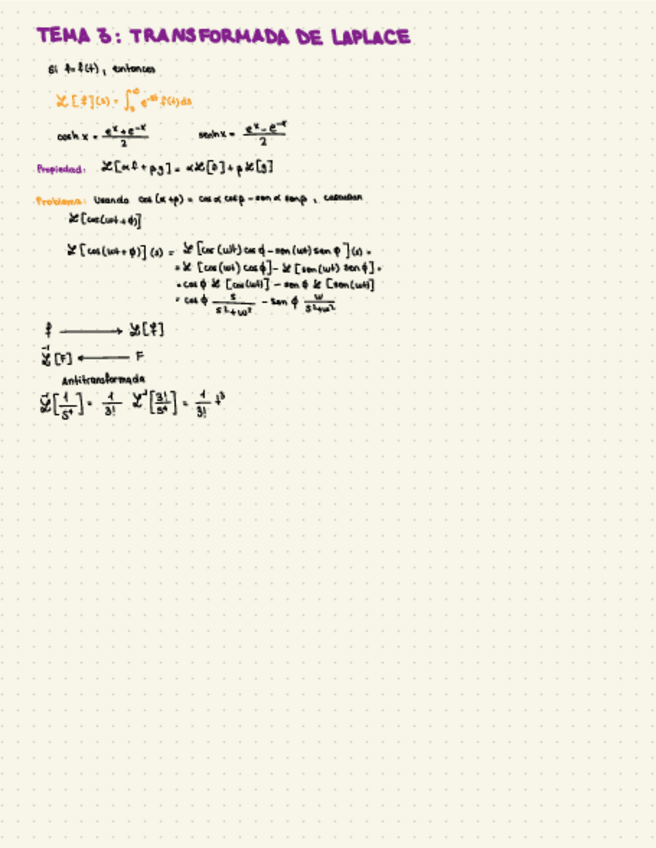 TEMA 3: TRANSFORMADA DE LAPLACE
Si f=f(t), entonces
ℒ[f](s) = ∫₀^∞ e^-st f(t) ds
cosh x = (e^x + e^-x)/2    senh x = (e^x - e^-x)/2
Propiedad: ℒ[αf + βg] = αℒ[f] + βℒ[g]
Problema: Usando cos(α+β) = cos α cos β - sen α sen β, calcular
ℒ[cos(ωt+ϕ)]
ℒ[cos(ωt+ϕ)](s) = ℒ[cos(ωt) cos ϕ - sen(ωt) sen ϕ](s) =
= ℒ[cos(ωt) cos ϕ] - ℒ[sen(ωt) sen ϕ] =
= cos ϕ ℒ[cos(ωt)] - sen ϕ ℒ[sen(ωt)]
= cos ϕ s/(s²+ω²) - sen ϕ ω/(s²+ω²)
f ⟶ ℒ[f]
ℒ⁻¹[F] ⟵ F
Antitransformada
ℒ⁻¹[1/s⁴] = 1/3! ℒ⁻¹[3!/s⁴] = 1/3! t³